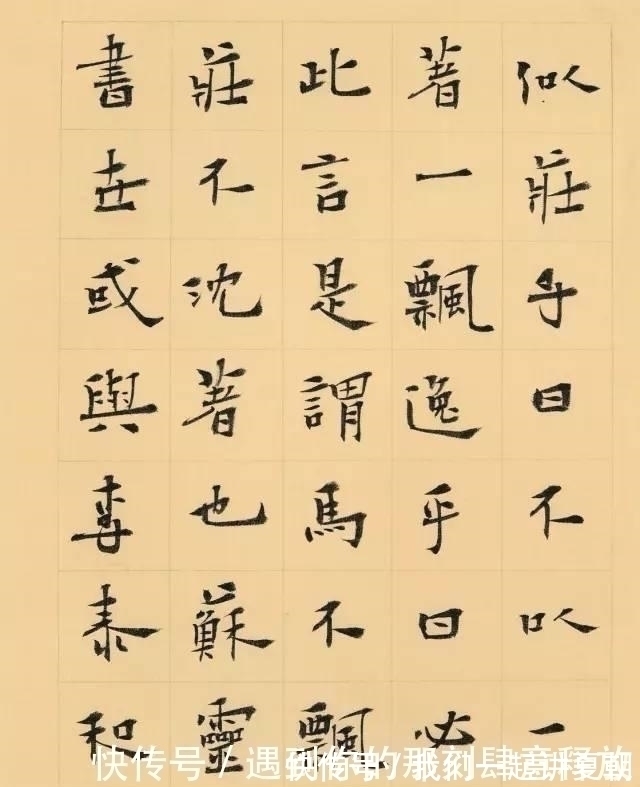 似莊乎曰不以一
著一飄逸乎曰必
此言是謂馬不飄
莊不沈著也蘇靈
書世或與李泰和
快传号 / 遇到你的那刻肆意释放
快传号 /